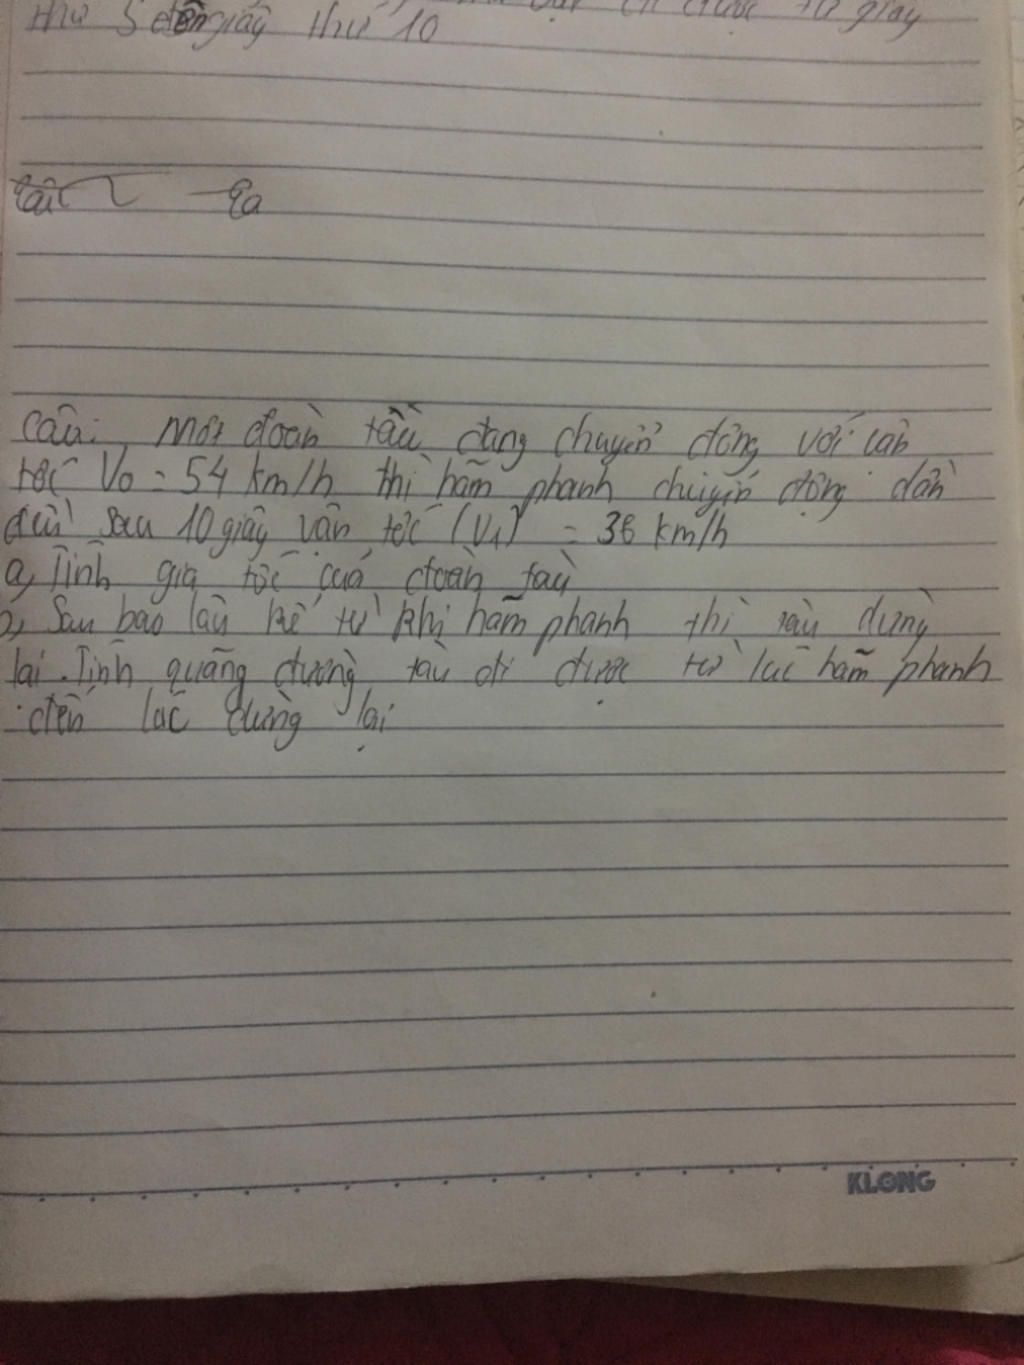 thứ 5 đến giây thứ 10
câu: Một đoàn tầu đang chuyển động với vận
tốc V₀ = 54 km/h thì hãm phanh chuyển động dần
đều sau 10 giây vận tốc (V₁) = 36 km/h
a, Tính gia tốc của đoàn tàu
b, Sau bao lâu kể từ khi hãm phanh thì tàu dừng
lại. Tính quãng đường tàu đi được từ lúc hãm phanh
đến lúc dừng lại
KLONG